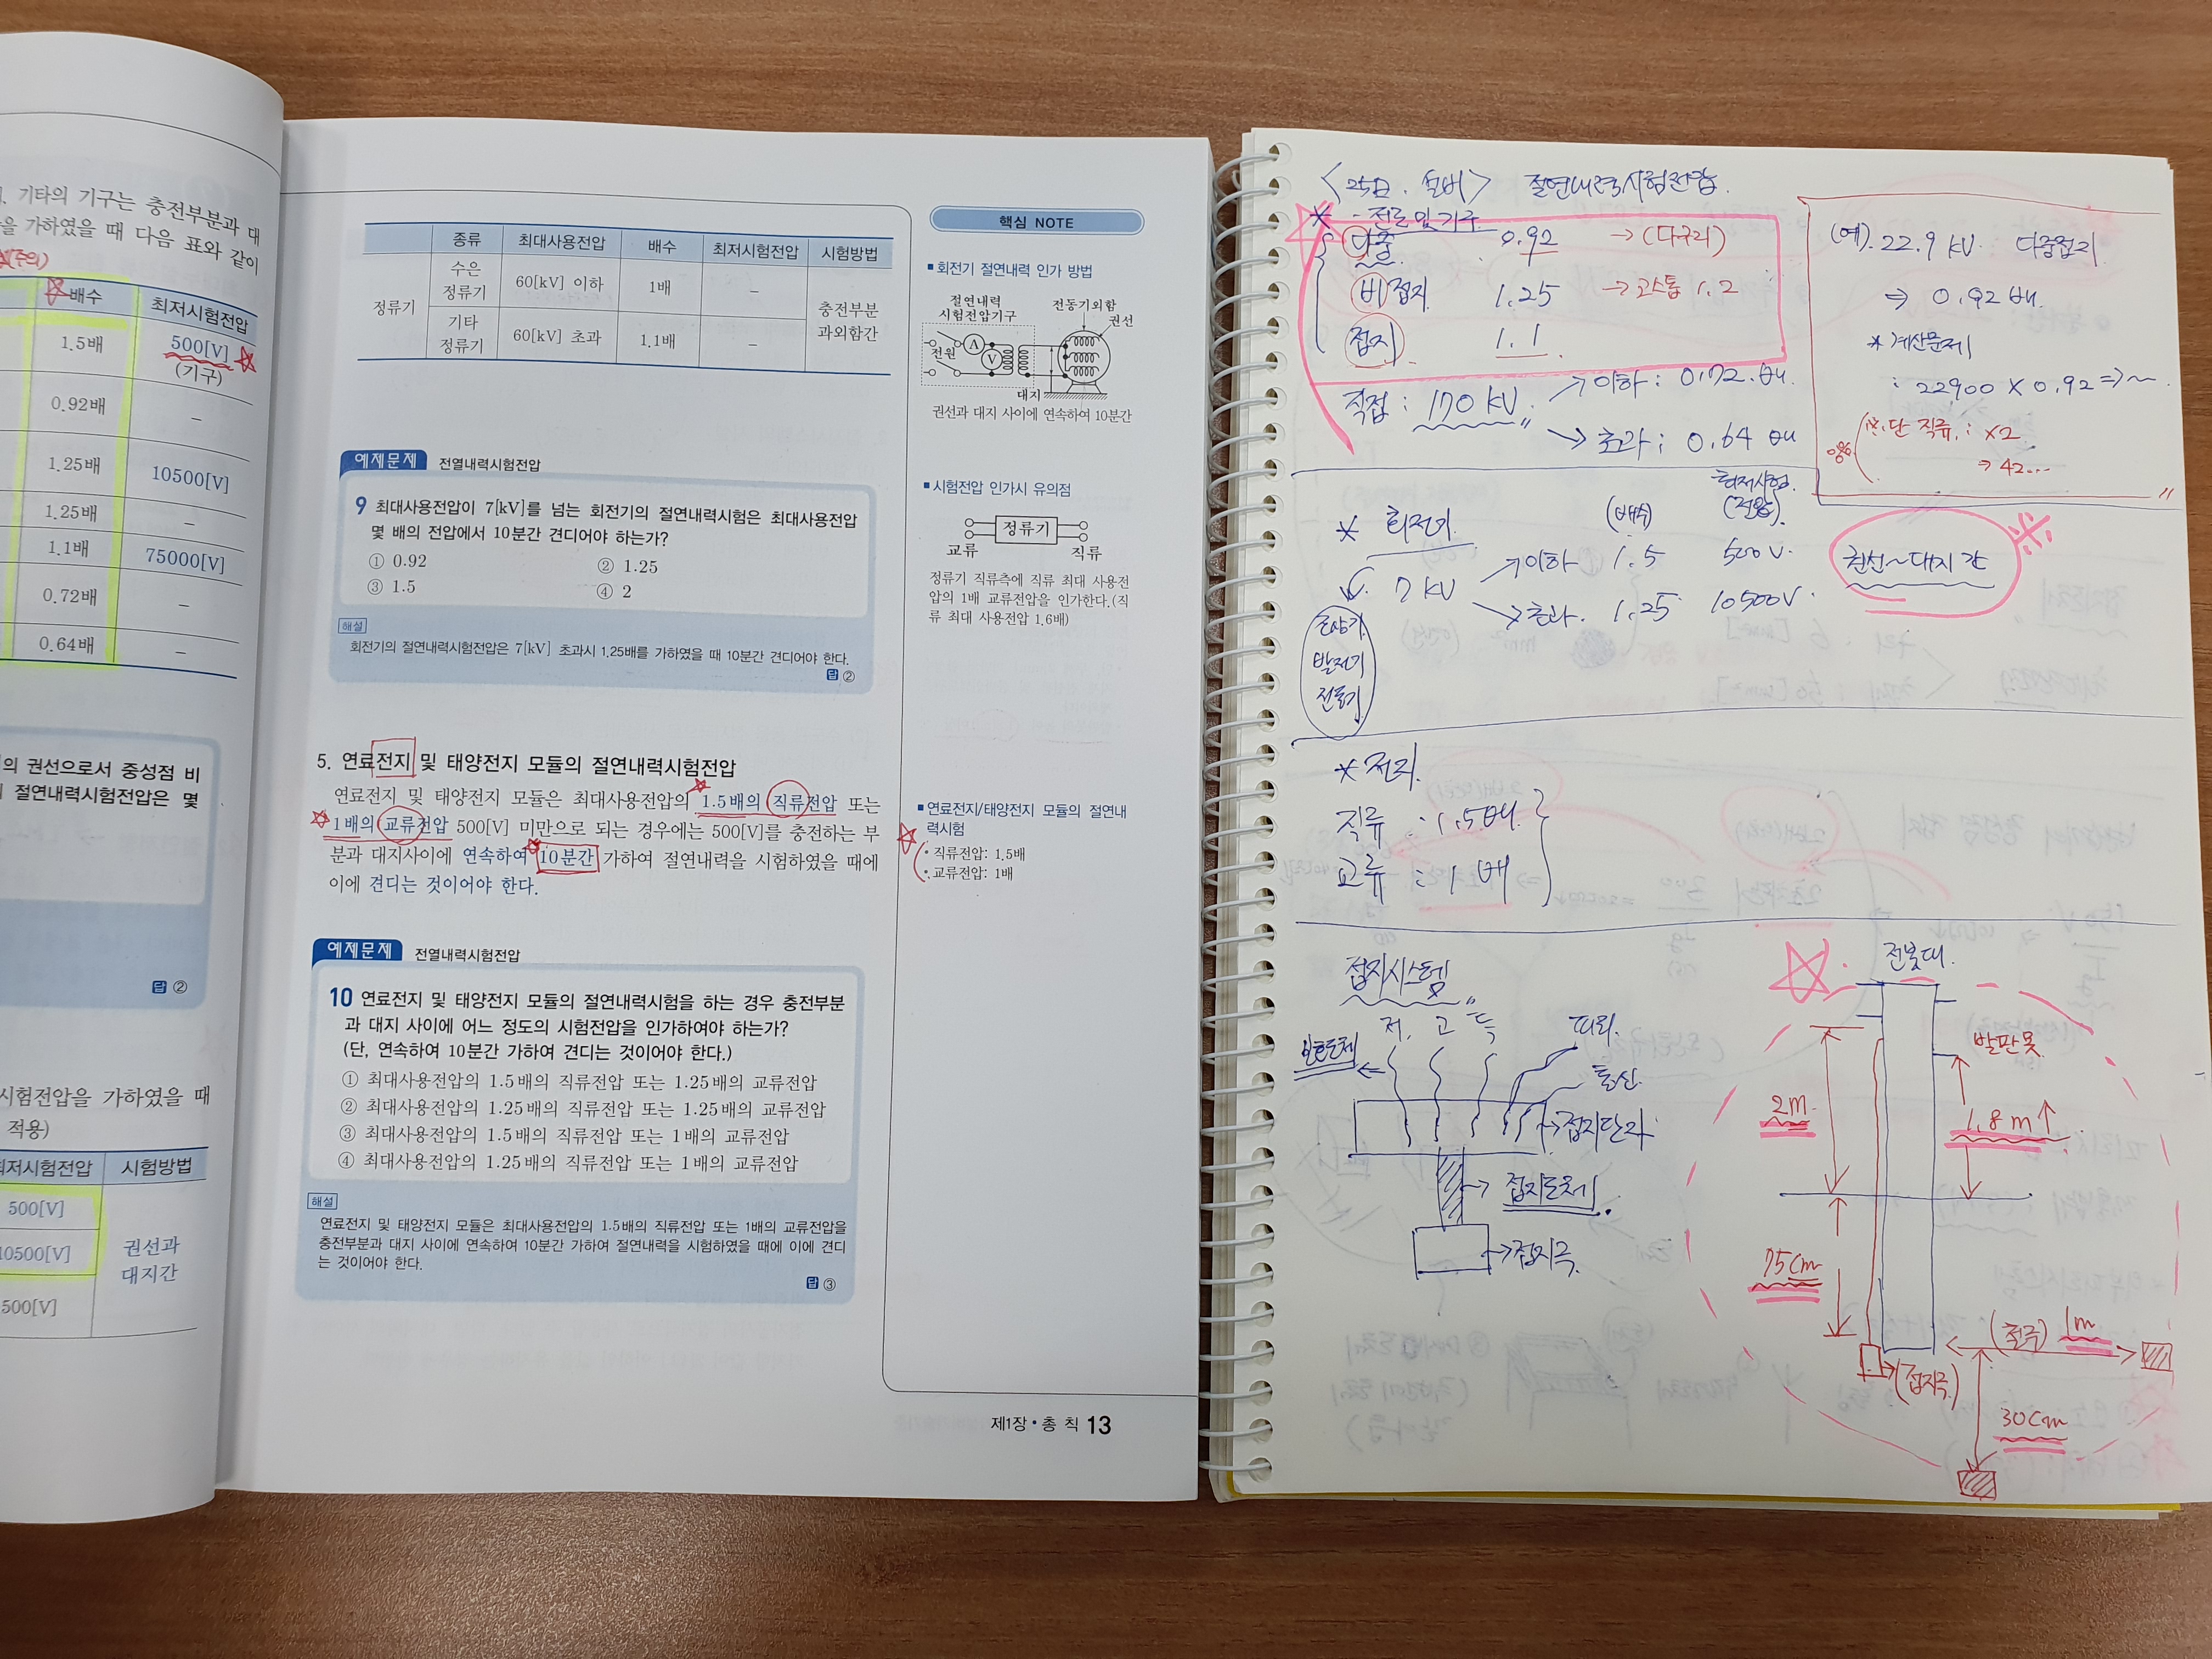 . 기타의 기구는 충전부분과 대
을 가하였을 때 다음 표와 같이
(주의)
배수
최저시험전압
1.5배
500[V]
(기구)
0.92배
–
1.25배
10500[V]
1.25배
–
1.1배
75000[V]
0.72배
–
0.64배
–
의 권선으로서 중성점 비
절연내력시험전압은 몇
답 ②
시험전압을 가하였을 때
적용)
최저시험전압 시험방법
500[V]
10500[V]
권선과
대지간
500[V]
종류 최대사용전압 배수 최저시험전압 시험방법
정류기
수은
정류기
60[kV] 이하 1배 –
기타
정류기
60[kV] 초과 1.1배 –
충전부분
과외함간
예제문제 전열내력시험전압
9 최대사용전압이 7[kV]를 넘는 회전기의 절연내력시험은 최대사용전압
몇 배의 전압에서 10분간 견디어야 하는가?
① 0.92 ② 1.25
③ 1.5 ④ 2
해설
회전기의 절연내력시험전압은 7[kV] 초과시 1.25배를 가하였을 때 10분간 견디어야 한다.
답 ②
5. 연료전지 및 태양전지 모듈의 절연내력시험전압
연료전지 및 태양전지 모듈은 최대사용전압의 1.5배의 직류전압 또는
1배의 교류전압 500[V] 미만으로 되는 경우에는 500[V]를 충전하는 부
분과 대지사이에 연속하여 10분간 가하여 절연내력을 시험하였을 때에
이에 견디는 것이어야 한다.
예제문제 전열내력시험전압
10 연료전지 및 태양전지 모듈의 절연내력시험을 하는 경우 충전부분
과 대지 사이에 어느 정도의 시험전압을 인가하여야 하는가?
(단, 연속하여 10분간 가하여 견디는 것이어야 한다.)
① 최대사용전압의 1.5배의 직류전압 또는 1.25배의 교류전압
② 최대사용전압의 1.25배의 직류전압 또는 1.25배의 교류전압
③ 최대사용전압의 1.5배의 직류전압 또는 1배의 교류전압
④ 최대사용전압의 1.25배의 직류전압 또는 1배의 교류전압
해설
연료전지 및 태양전지 모듈은 최대사용전압의 1.5배의 직류전압 또는 1배의 교류전압을
충전부분과 대지 사이에 연속하여 10분간 가하여 절연내력을 시험하였을 때에 이에 견디
는 것이어야 한다.
답 ③
핵심 NOTE
■ 회전기 절연내력 인가 방법
절연내력
시험전압기구
전동기외함
권선
전원
A
V
대지
권선과 대지 사이에 연속하여 10분간
■ 시험전압 인가시 유의점
정류기
교류 직류
정류기 직류측에 직류 최대 사용전
압의 1배 교류전압을 인가한다.(직
류 최대 사용전압 1.6배)
■ 연료전지/태양전지 모듈의 절연내
력시험
• 직류전압: 1.5배
• 교류전압: 1배
제1장 • 총 칙 13
<25강. 설비> 절연내력시험전압.
* - 전로 및 기구
다중 0.92 → (다구리)
비접지 1.25 → 고스톱 1.2
접지 1.1
직접 : 170 kV → 이하 : 0.72 배.
→ 초과 : 0.64 배
(예). 22.9 kV 다중접지
⇒ 0.92 배.
* 계산문제
: 22900 × 0.92 ⇒ ~
(※. 단 직류. : ×2
⇒ 42...
* 회전기 (배수) 최저시험. (전압).
7 kV → 이하 1.5 500 V.
→ 초과. 1.25 10500V.
권선~대지 간
조상기
발전기
전동기
* 전지.
직류 : 1.5배.
교류 : 1 배
접지시스템
저. 고 특
피뢰.
보호도체
통신.
→ 접지단자
→ 접지도체.
→ 접지극.
전봇대.
발판못.
2m
1.8m↑
75cm
(철주) 1m
→(접지극)
30cm